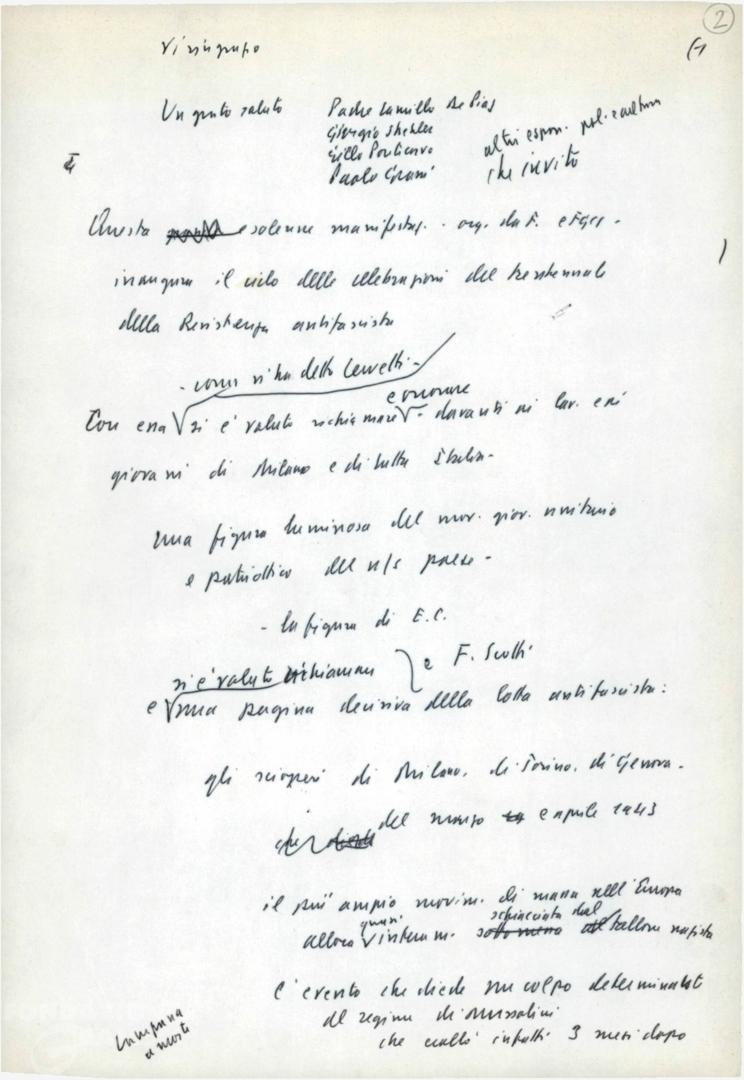 2
Vi ringrazio
Un grato saluto Padre Camillo de Piaz
Giorgio Strehler
Gillo Pontecorvo
Paolo Grassi
altri espon. pol. e cultura
che invito
Questa e solenne manifestaz. - org. da F. e FGCI -
inaugura il ciclo delle celebrazioni del trentennale
della Resistenza antifascista
- come vi ha detto Cervetti -
Con essa si è voluto richiamare e onorare - davanti ai lav. e ai
giovani di Milano e di tutta Italia -
una figura luminosa del mov. giov. unitario
e patriottico del n/s paese -
- la figura di E.C.
e F. Scotti
si è voluto richiamare
e una pagina decisiva della lotta antifascista:
gli scioperi di Milano, di Torino, di Genova -
che del marzo e aprile 1943
il più ampio movim. di massa nell'Europa
allora quasi interam. schiacciata dal tallone nazista
L'evento che diede un colpo determinant
al regime di Mussolini
che crollò infatti 3 mesi dopo
Campana
a morte